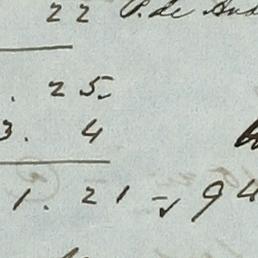 22 P. de And
. 25.
3. 4
1. 21 = 94